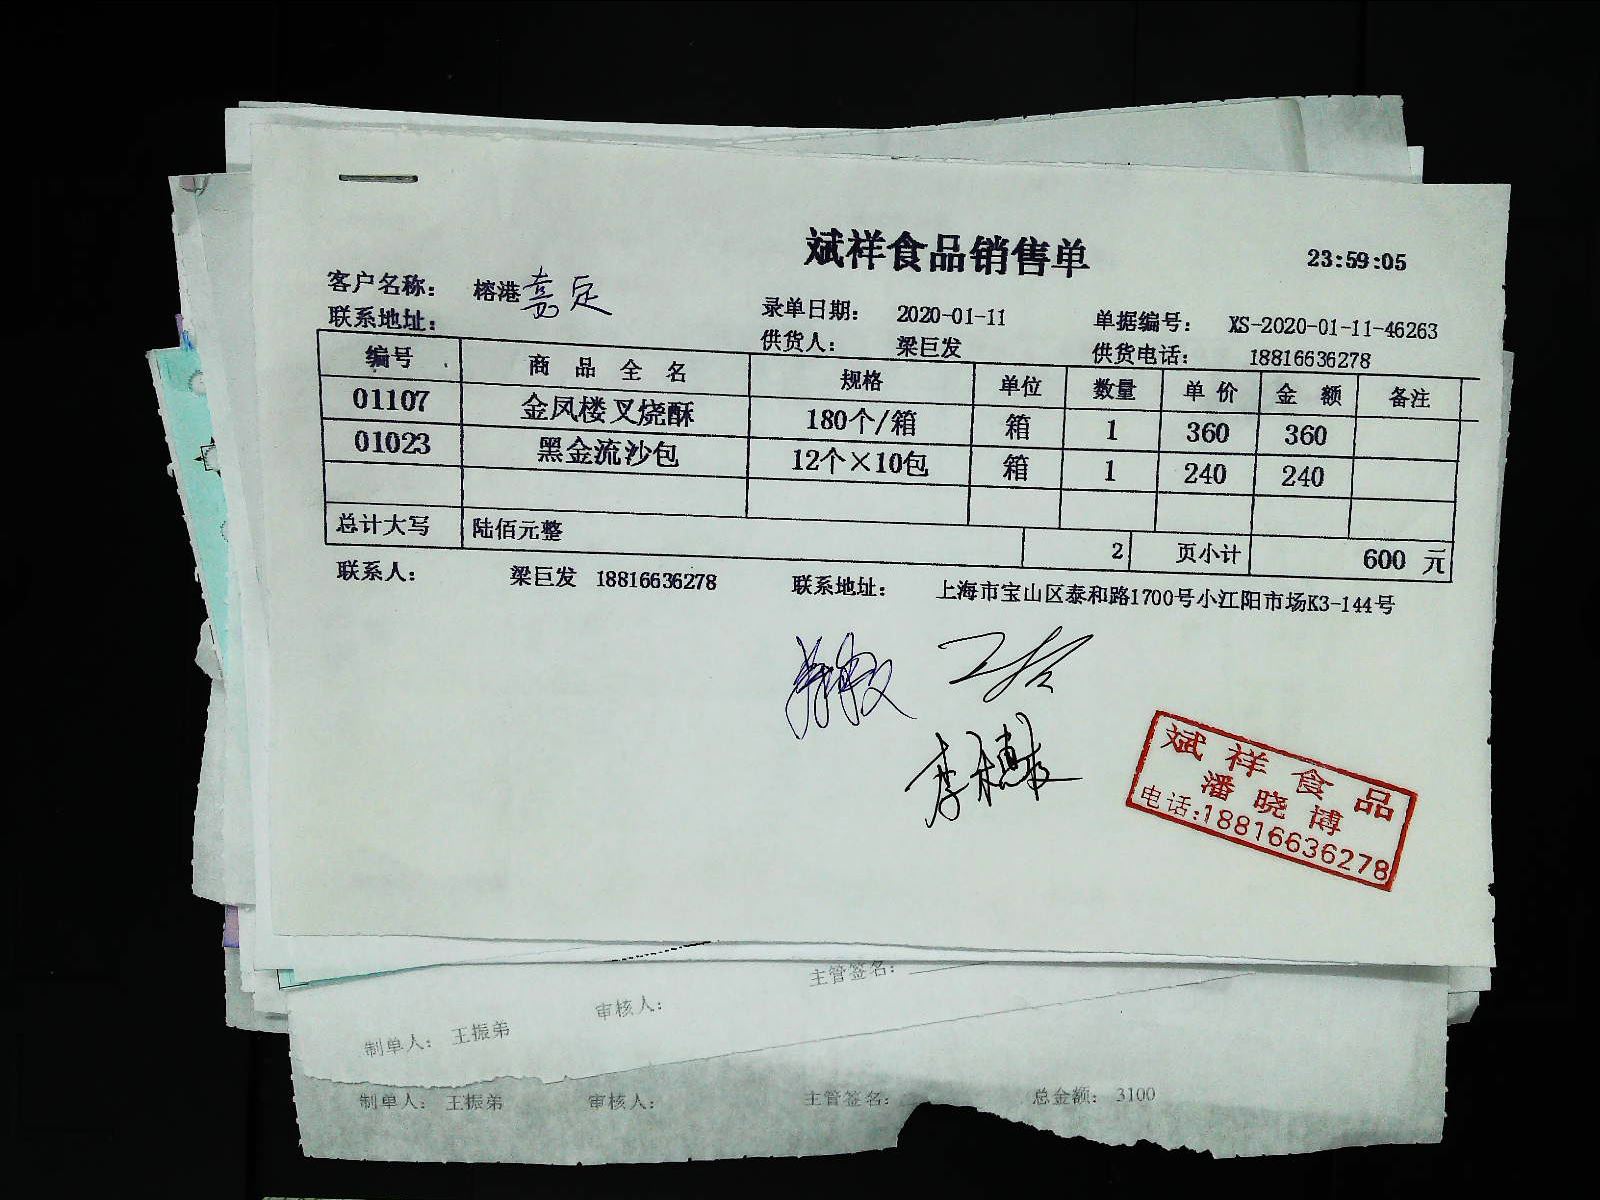 斌祥食品销售单
23:59:05
客户名称： 榕港嘉定
录单日期： 2020-01-11 单据编号： XS-2020-01-11-46263
联系地址： 供货人： 梁巨发 供货电话： 18816636278
编号 商品全名 规格 单位 数量 单价 金额 备注
01107 金凤楼叉烧酥 180个/箱 箱 1 360 360
01023 黑金流沙包 12个×10包 箱 1 240 240
总计大写 陆佰元整 2 页小计 600 元
联系人： 梁巨发 18816636278 联系地址： 上海市宝山区泰和路1700号小江阳市场K3-144号
斌祥食品
潘晓博
电话:18816636278
主管签名：
制单人： 王振弟 审核人：
制单人： 王振弟 审核人： 主管签名： 总金额： 3100